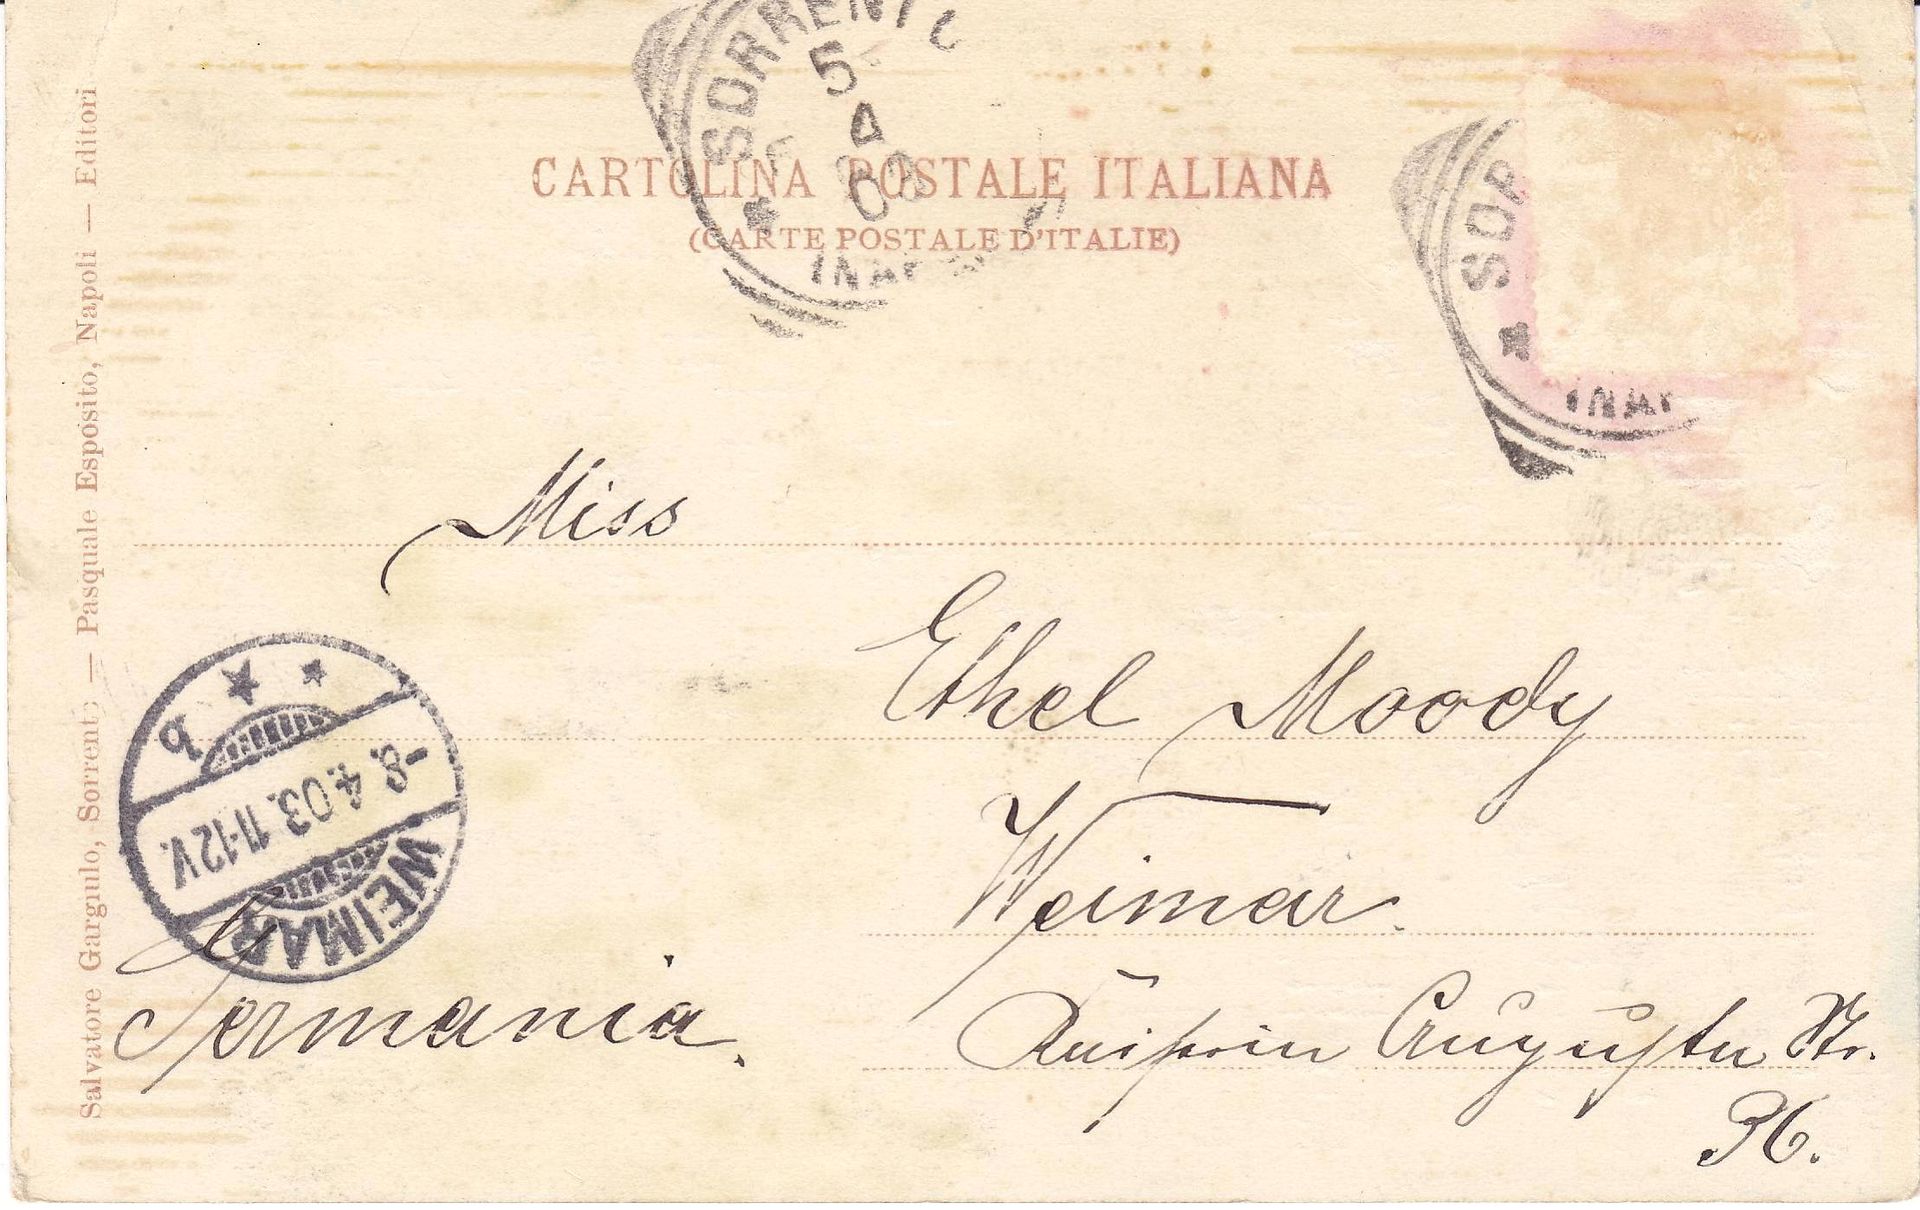 CARTOLINA POSTALE ITALIANA
(CARTE POSTALE D'ITALIE)
SORRENTO
5
4
03
SOR
Salvatore Gargiulo, Sorrent; — Pasquale Esposito, Napoli — Editori
Miss
Ethel Moody
Weimar.
Kaiserin Augusta Str.
36.
Germania.
WEIMAR
-8.4.03.11-12V.
b